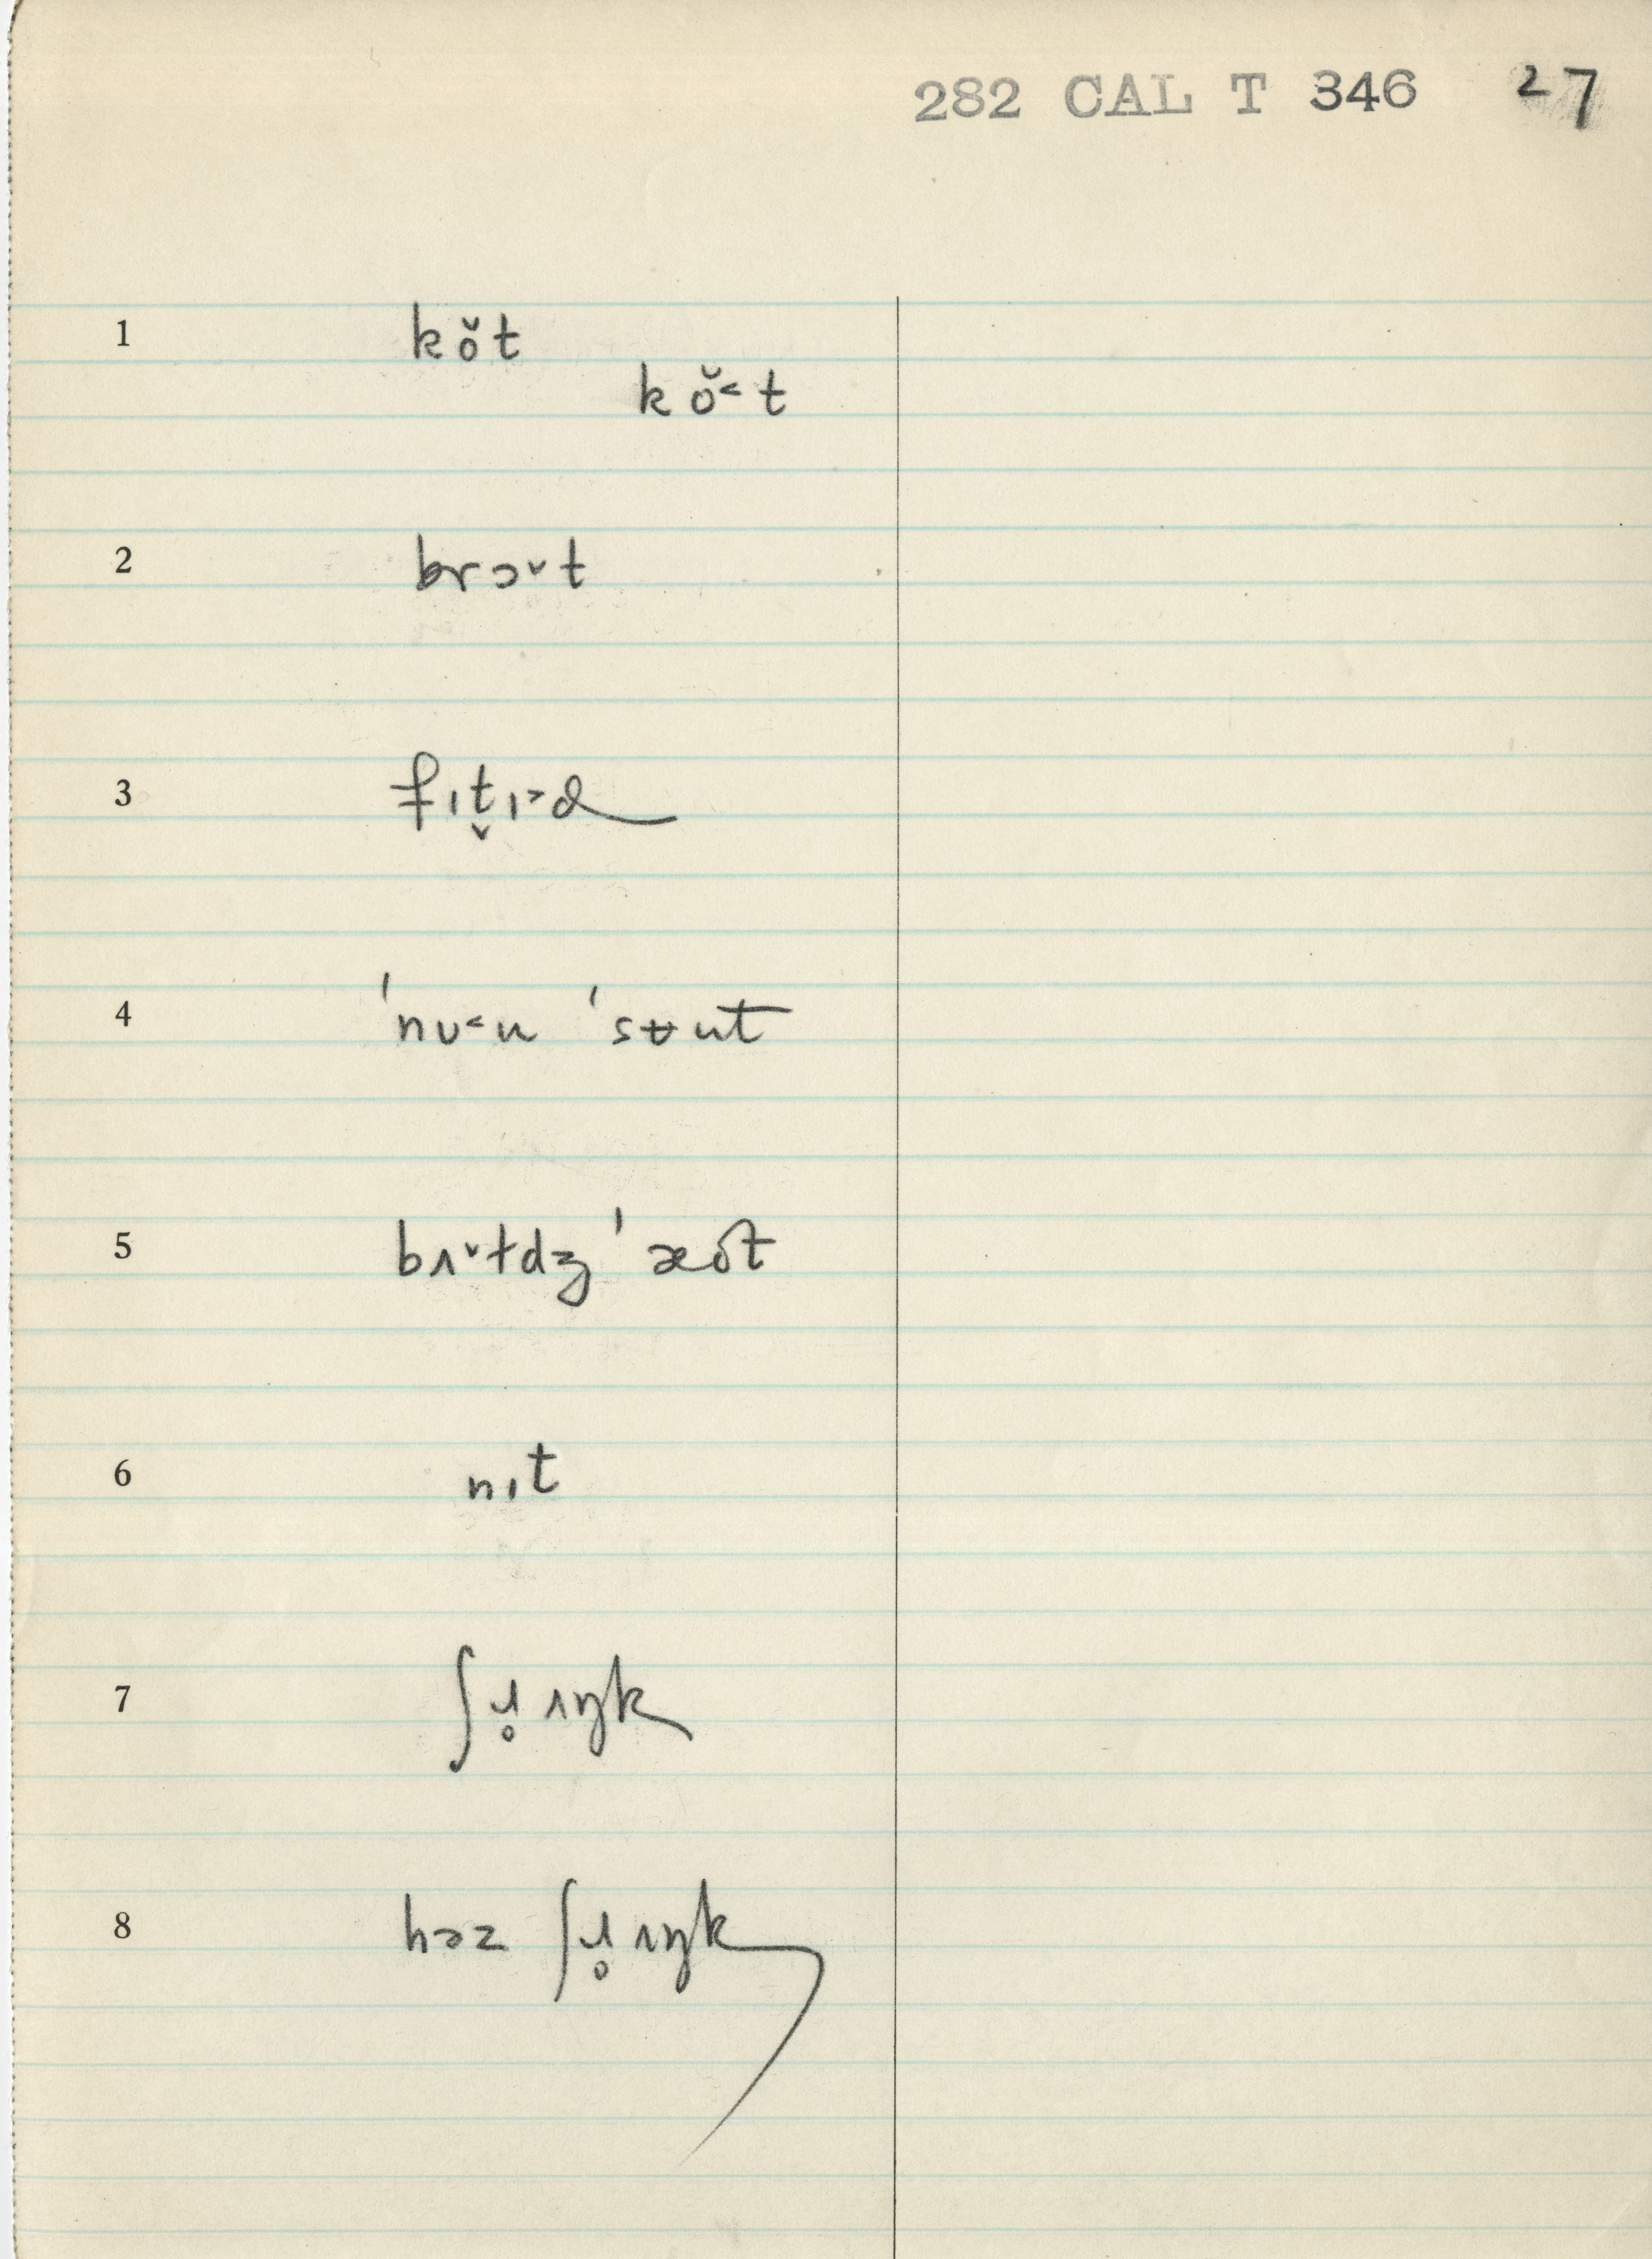 282 CAL T 346 27
1 kŏt
kŏ˂t
2 brɔ˅t
3 fɪt̬ɪ˃d
4 ˈnʊ˂u ˈsʉut
5 bɪ˅ɫdʒ ˈæot
6 nɪt
7 ʃɹ̥ɪŋk
8 həz ʃɹ̥ɪŋk